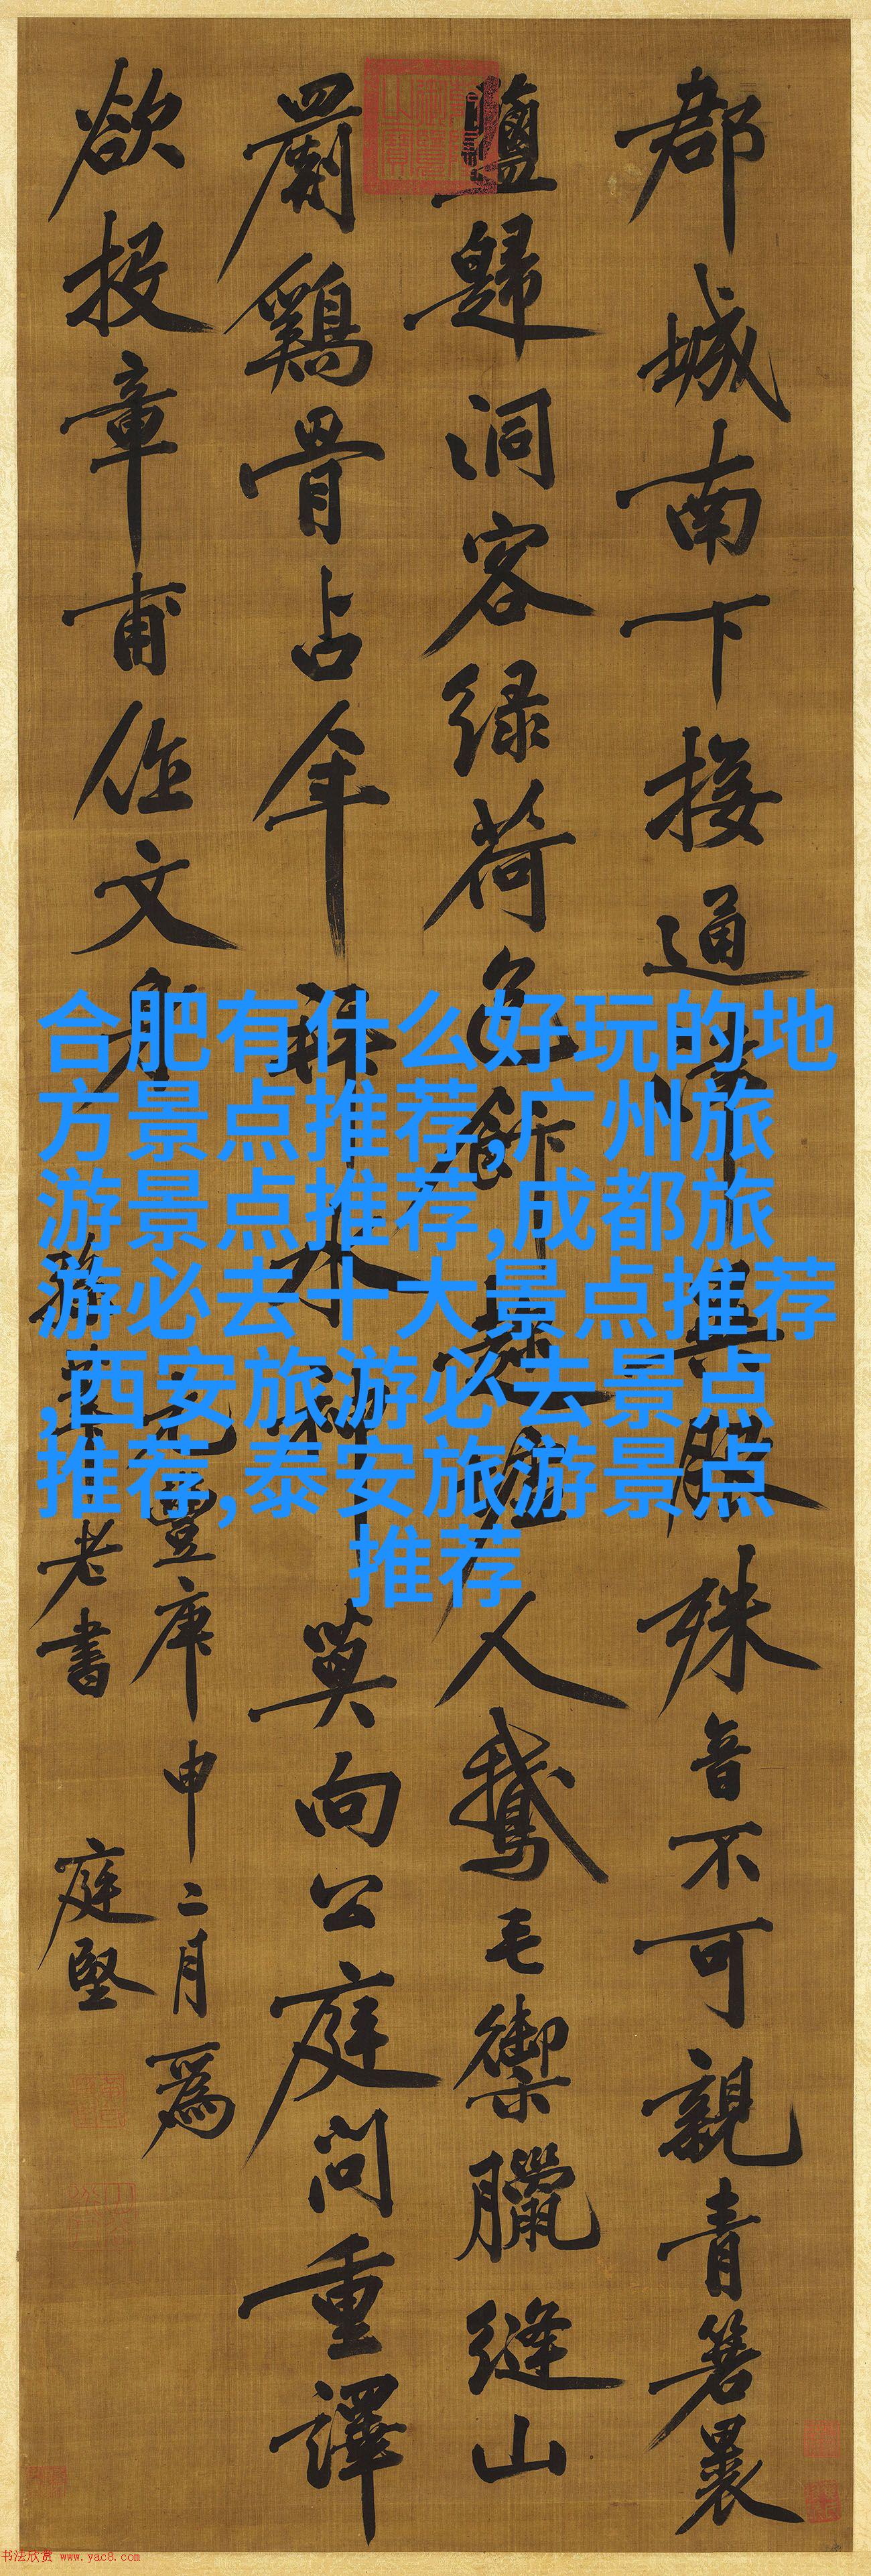 郡城南下接通津異服殊音不可親青箬裹
鹽歸洞客緑荷包飯趁墟人鵝毛禦臘縫山
罽鷄骨占年拜水神莫向公庭問重譯
欲投章甫作文身
元豐庚申二月爲
老書 庭堅
合肥有什么好玩的地
方景点推荐,广州旅
游景点推荐,成都旅
游必去十大景点推荐
,西安旅游必去景点
推荐,泰安旅游景点
推荐
书法欣赏 www.yac8.com